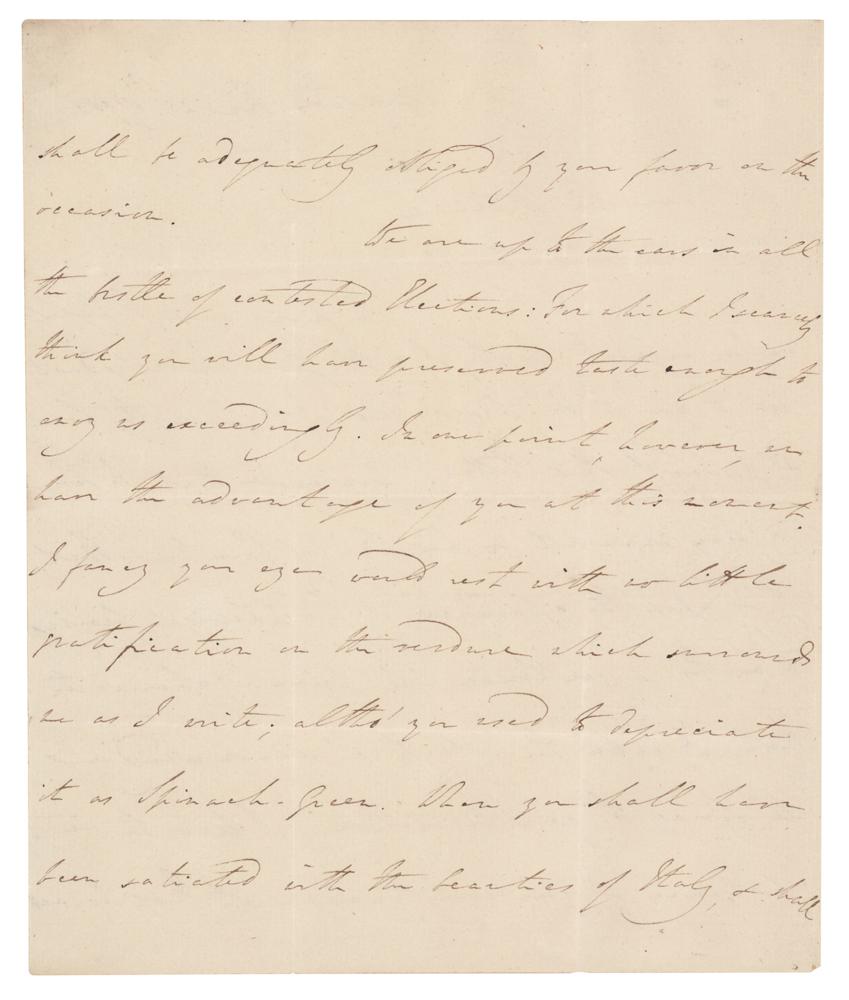 shall be adequately obliged by your favor on the
occasion.
We are up to the ears in all
the bustle of contested Elections: For which I scarcely
think you will have preserved taste enough to
envy us exceedingly. In one point, however, we
have the advantage of you at this moment.
I fancy your eyes would rest with no little
gratification on the verdure which surrounds
me as I write; altho' you used to depreciate
it as Spinach-Green. When you shall have
been satiated with the beauties of Italy, & shall